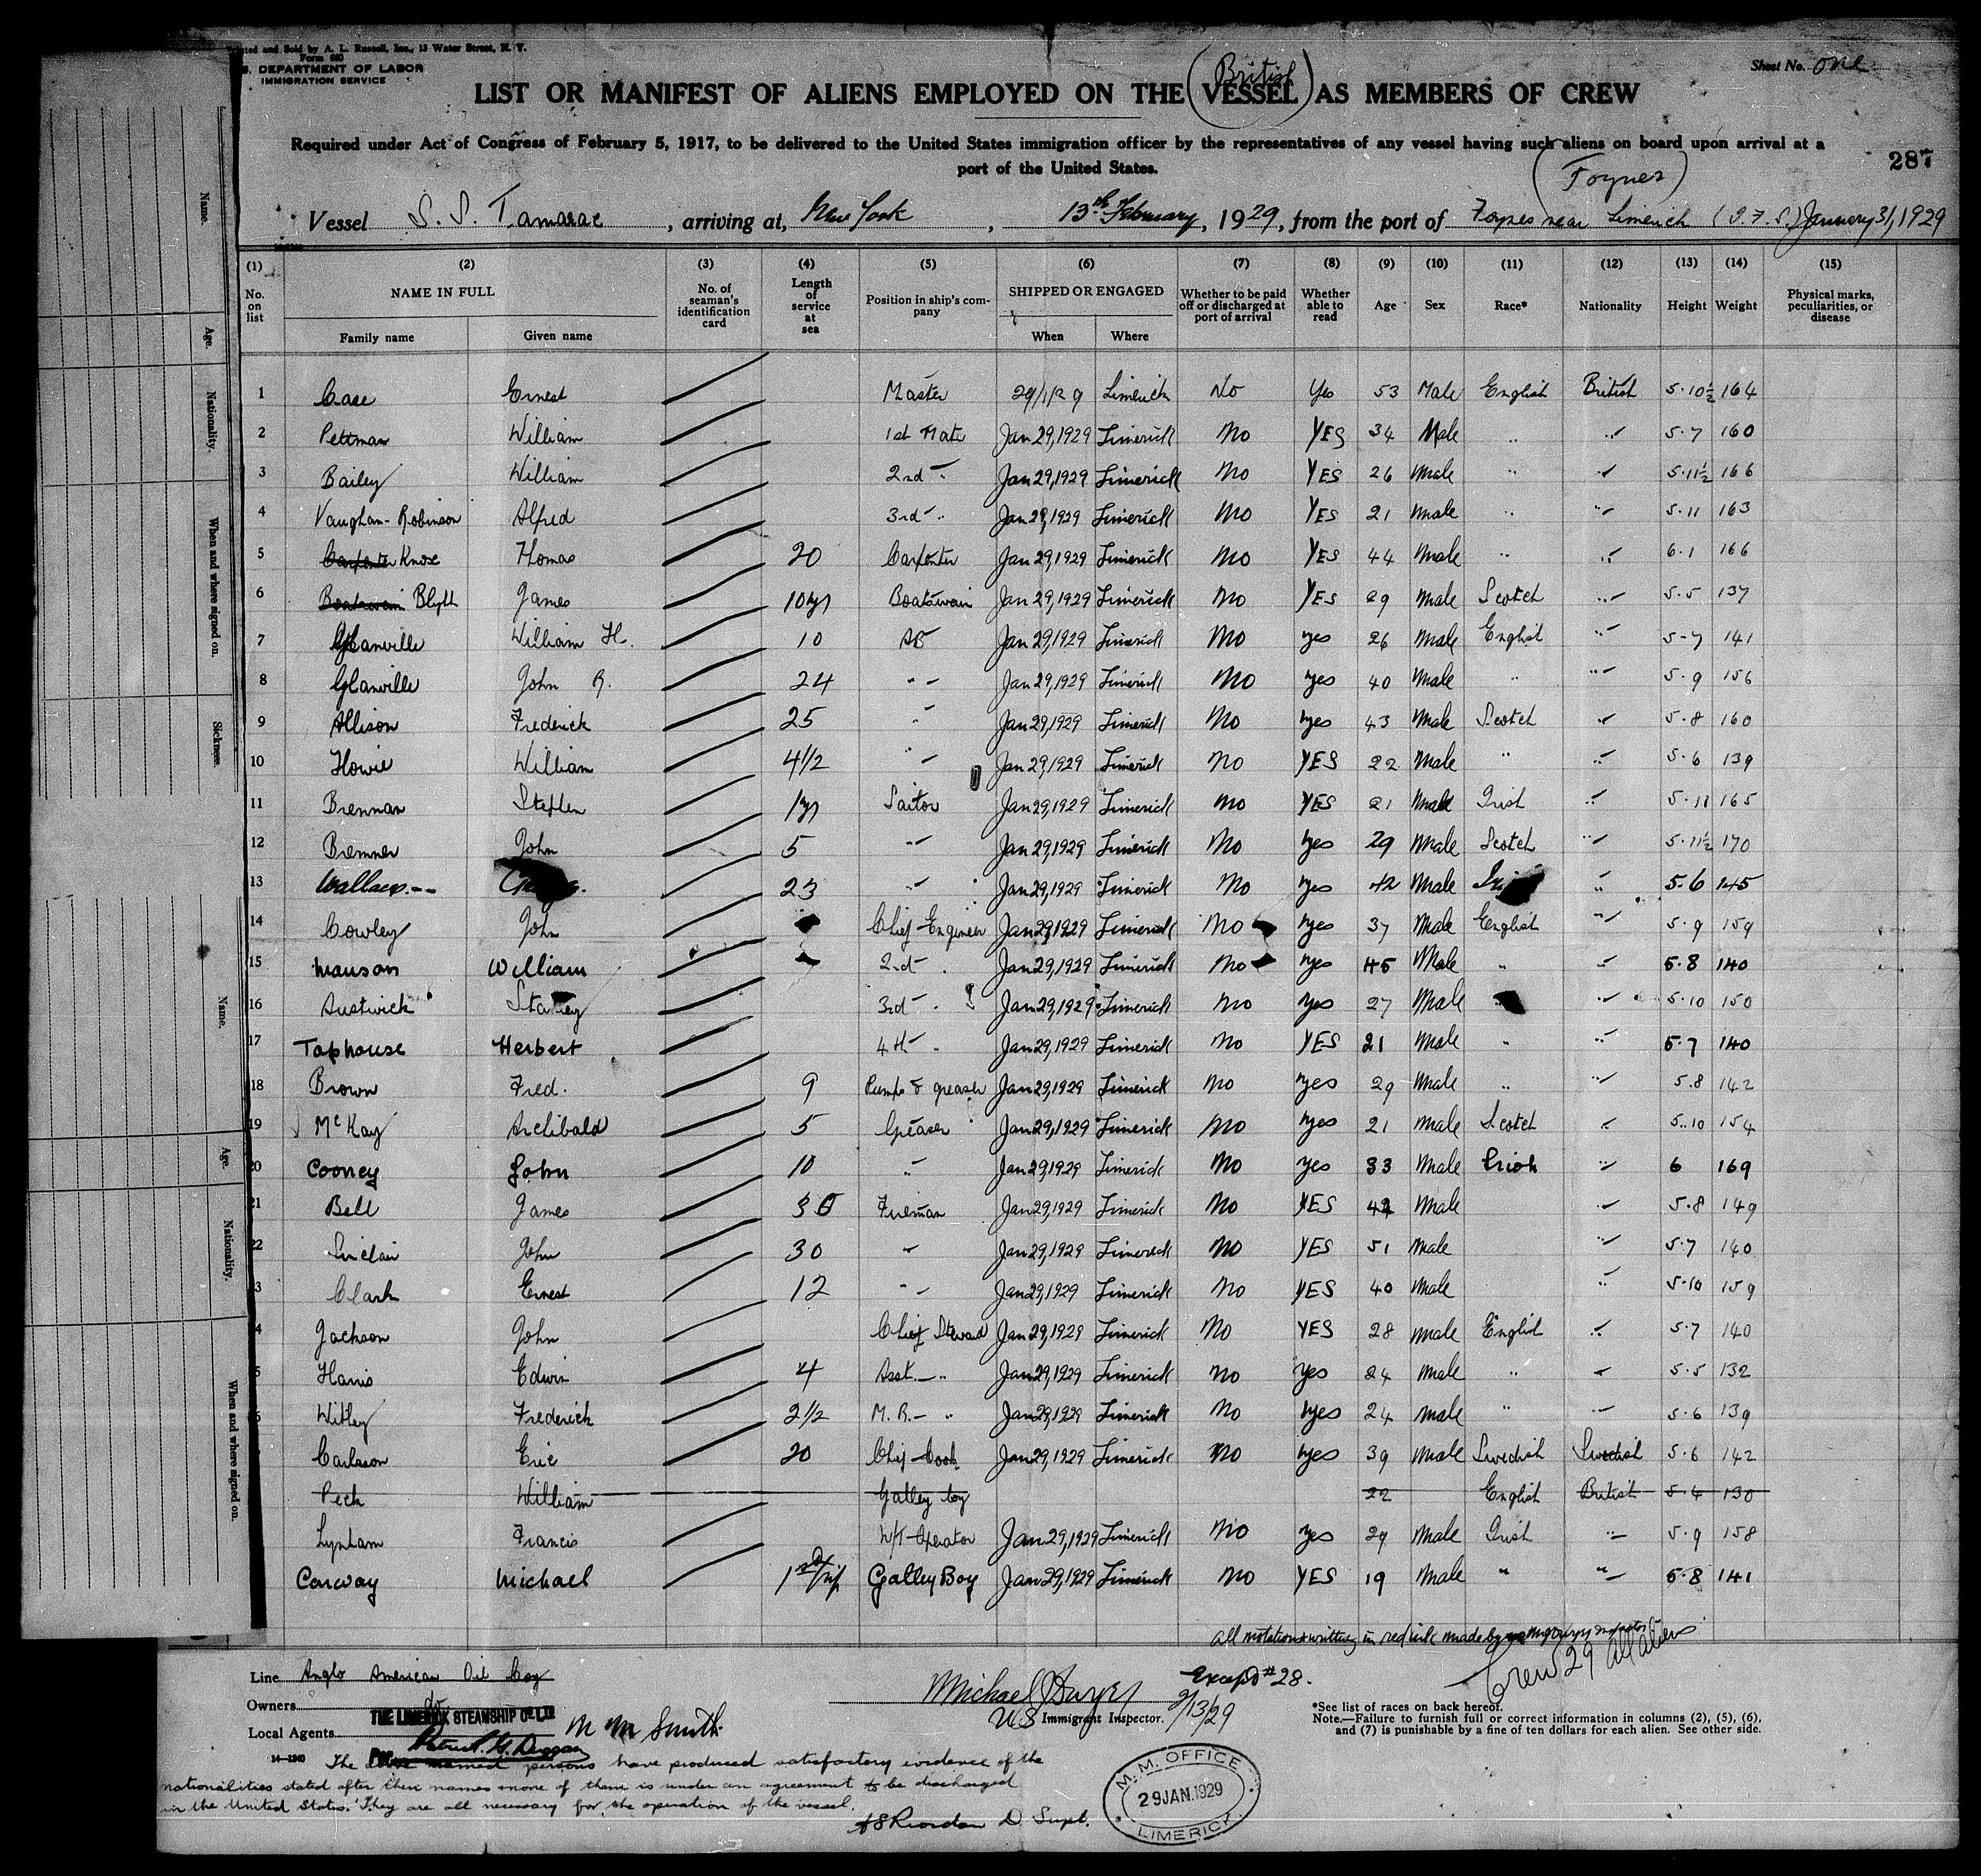 Printed and Sold by A. L. Russell, Inc., 13 Water Street, N. Y.
Form 680
U.S. DEPARTMENT OF LABOR
IMMIGRATION SERVICE
Sheet No. one
(British)
LIST OR MANIFEST OF ALIENS EMPLOYED ON THE VESSEL AS MEMBERS OF CREW
Required under Act of Congress of February 5, 1917, to be delivered to the United States immigration officer by the representatives of any vessel having such aliens on board upon arrival at a
port of the United States.
287
(Foynes)
Vessel S. S. Tamarac, arriving at, New York, 13th February, 1929, from the port of Foynes near Limerick (I. F. S.) January 31, 1929
(1) (2) (3) (4) (5) (6) (7) (8) (9) (10) (11) (12) (13) (14) (15)
No. on list NAME IN FULL Family name Given name No. of seaman's identification card Length of service at sea Position in ship's company SHIPPED OR ENGAGED When Where Whether to be paid off or discharged at port of arrival Whether able to read Age Sex Race* Nationality Height Weight Physical marks, peculiarities, or disease
1 Case Ernest Master 29/1/29 Limerick No Yes 53 Male English British 5.10½ 164
2 Pettman William 1st Mate Jan 29, 1929 Limerick No YES 34 Male " " 5.7 160
3 Bailey William 2nd " Jan 29, 1929 Limerick No YES 26 Male " " 5.11½ 166
4 Vaughan-Robinson Alfred 3rd " Jan 29, 1929 Limerick No YES 21 Male " " 5.11 163
5 Carpenter Knox Thomas 20 Carpenter Jan 29, 1929 Limerick No YES 44 Male " " 6.1 166
6 Boatswain Blyth James 10 yrs Boatswain Jan 29, 1929 Limerick No YES 29 Male Scotch " 5.5 137
7 Glanville William H. 10 AB Jan 29, 1929 Limerick No yes 26 Male English " 5-7 141
8 Glanville John R. 24 " Jan 29, 1929 Limerick No yes 40 Male " " 5.9 156
9 Allison Frederick 25 " Jan 29, 1929 Limerick No yes 43 Male Scotch " 5.8 160
10 Howie William 4 1/2 " Jan 29, 1929 Limerick No YES 22 Male " " 5.6 139
11 Brennan Stephen 1 yr Sailor Jan 29, 1929 Limerick No YES 21 Male Irish " 5.11 165
12 Bremner John 5 " Jan 29, 1929 Limerick No yes 29 Male Scotch " 5.11½ 170
13 Wallace 23 " Jan 29, 1929 Limerick No yes 42 Male " 5.6 145
14 Cowley John Chief Engineer Jan 29, 1929 Limerick No yes 37 Male English " 5.9 159
15 Manson William 2nd " Jan 29, 1929 Limerick No yes 45 Male " " 5.8 140
16 Austwick Stanley 3rd " Jan 29, 1929 Limerick No yes 27 Male " 5.10 150
17 Taphouse Herbert 4th " Jan 29, 1929 Limerick No YES 21 Male " " 5.7 140
18 Brown Fred. 9 greaser Jan 29, 1929 Limerick No yes 29 Male " " 5.8 142
19 McKay Archibald 5 Greaser Jan 29, 1929 Limerick No yes 21 Male Scotch " 5.10 154
20 Cooney John 10 " Jan 29, 1929 Limerick No yes 33 Male Irish " 6 169
21 Bell James Fireman Jan 29, 1929 Limerick No YES Male " 5.8 149
22 Sinclair John 30 " Jan 29, 1929 Limerick No YES 51 Male " 5.7 140
3 Clark Ernest 12 " Jan 29, 1929 Limerick No YES 40 Male " 5.10 159
4 Jackson John Chief Steward Jan 29, 1929 Limerick No YES 28 Male English " 5.7 140
5 Harris Edwin 4 Asst. " Jan 29, 1929 Limerick No yes 24 Male " " 5.5 132
6 Witley Frederick 2 1/2 M. R. " Jan 29, 1929 Limerick No yes 24 Male " " 5.6 139
7 Carlsson Eric 20 Chief Cook Jan 29, 1929 Limerick No yes 39 Male Swedish Swedish 5.6 142
Peck William Galley boy 22 English British 5.4 130
Lynham Francis W/T Operator Jan 29, 1929 Limerick No yes 29 Male Irish " 5.9 158
Conway Michael 1st trip Galley Boy Jan 29, 1929 Limerick No YES 19 Male " " 5.8 141
all notations written in red ink made by
Except #28.
Crew 29 all aliens
Line Anglo American Oil Coy
Owners do
Local Agents THE LIMERICK STEAMSHIP Co LTD
M M Smith
Per
Michael
US Immigrant Inspector. 2/13/29
*See list of races on back hereof.
Note.—Failure to furnish full or correct information in columns (2), (5), (6),
and (7) is punishable by a fine of ten dollars for each alien. See other side.
14—1240
The above named persons have produced satisfactory evidence of the
nationalities stated after their names & none of them is under an agreement to be discharged
in the United States. They are all necessary for the operation of the vessel.
Riordan D. Supt.
M. M. OFFICE
29 JAN. 1929
LIMERICK
Name.
Age.
Nationality.
When and where signed on.
Sickness.
Name.
Age.
Nationality.
When and where signed on.